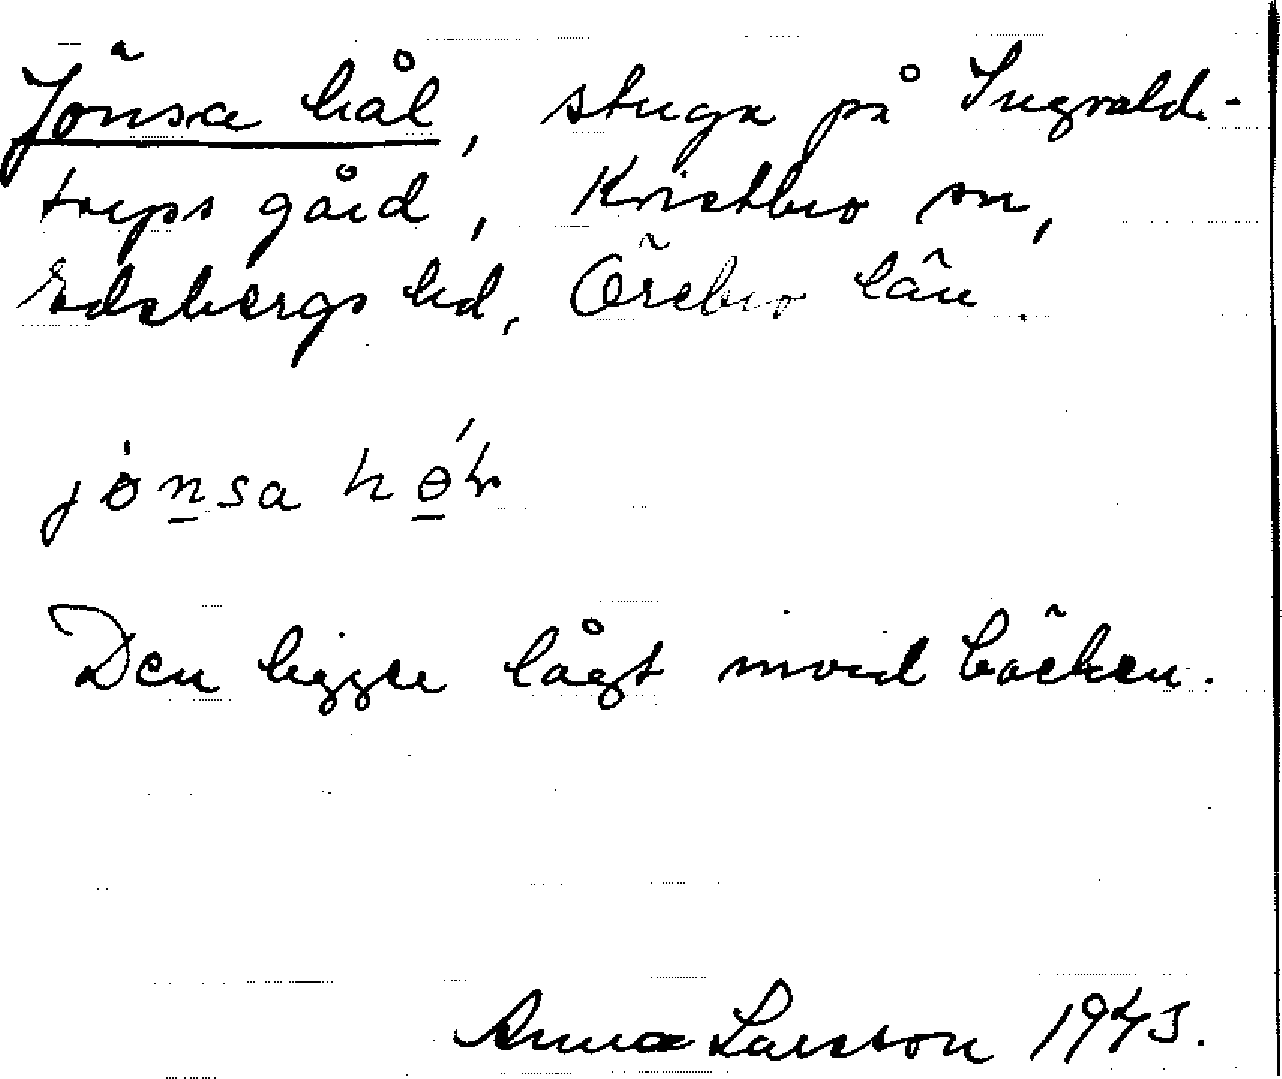 Jönsa hål, stuga på Ingvalds-
torps gård, Kvistbro sn,
Edsbergs hd, Örebro län.
jönsa
Den ligger lågt med bäcken.
Anna Larsson 1943.